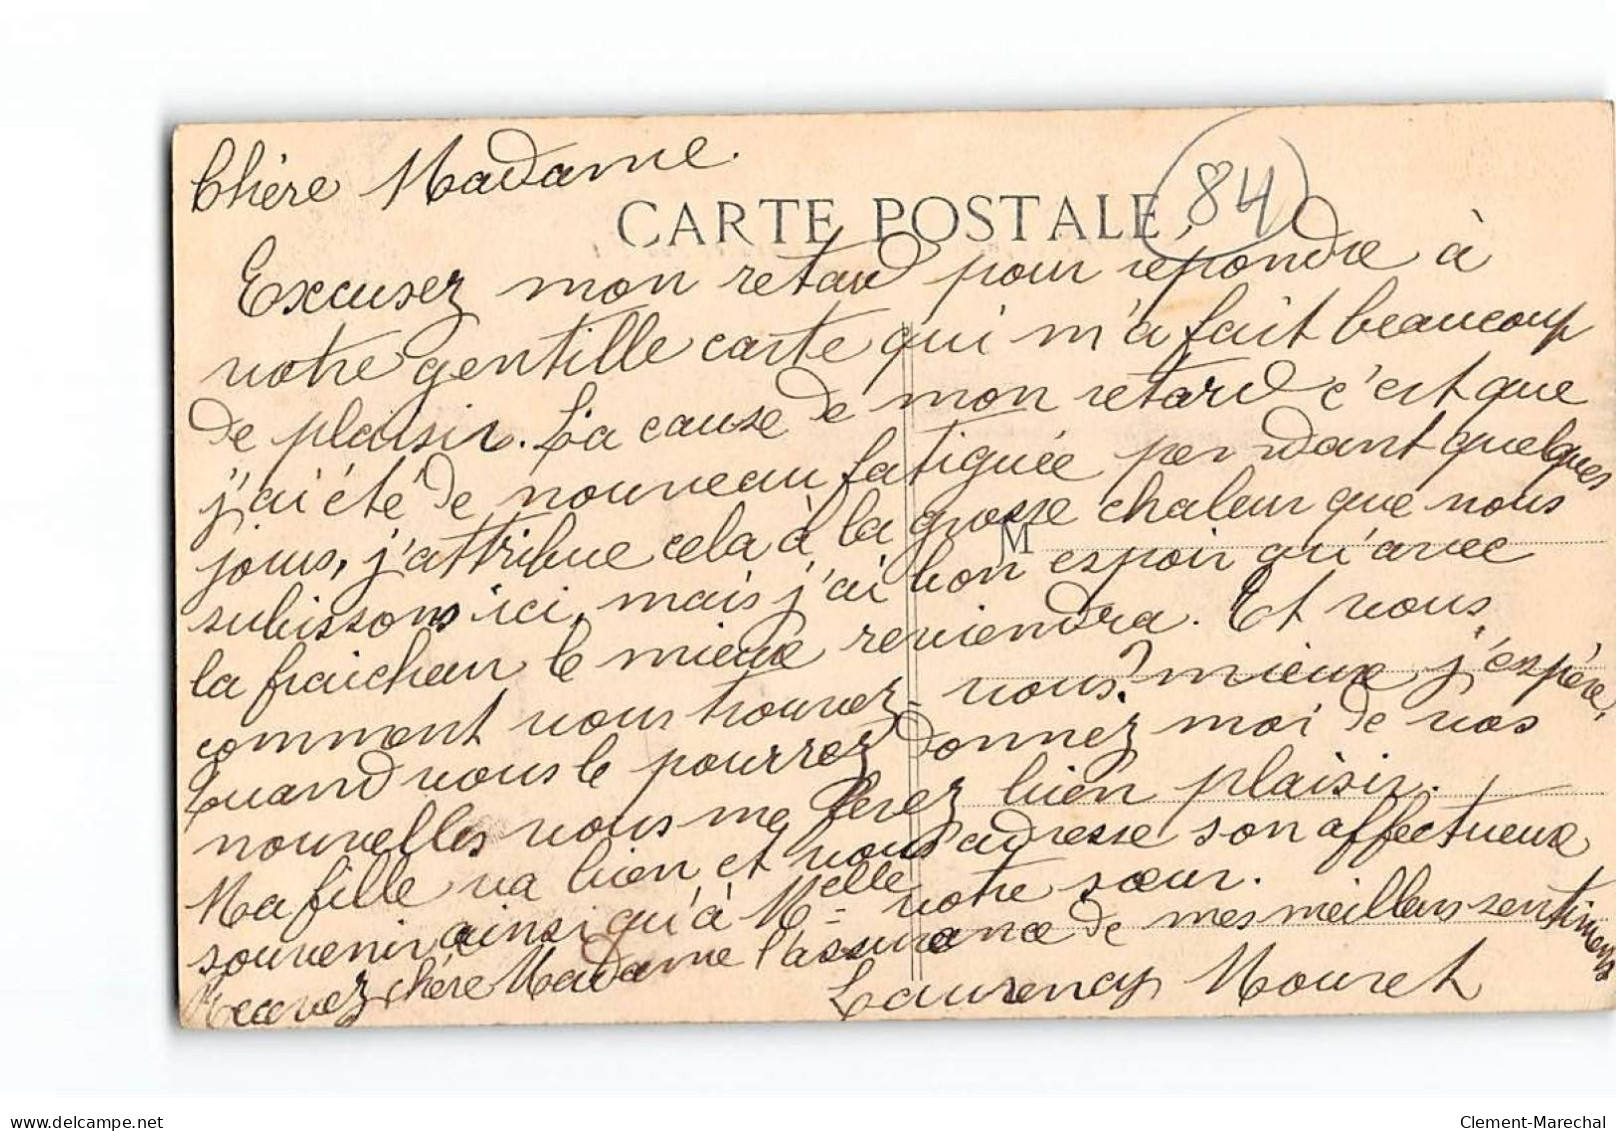 Chère Madame.
CARTE POSTALE
84
Excusez mon retard pour répondre à
votre gentille carte qui m'a fait beaucoup
de plaisir. La cause de mon retard c'est que
j'ai été de nouveau fatiguée pendant quelques
jours, j'attribue cela à la grosse chaleur que nous
M
subissons ici, mais j'ai bon espoir qu'avec
la fraicheur le mieux reviendra. Et vous,
comment vous trouvez-vous? mieux j'espère,
Quand vous le pourrez donnez moi de vos
nouvelles vous me ferez bien plaisir.
Ma fille va bien et vous adresse son affectueux
souvenir ainsi qu'à Melle votre sœur.
Recevez chère Madame l'assurance de mes meilleurs sentiments
Mouret
delcampe.net
Clement-Marechal